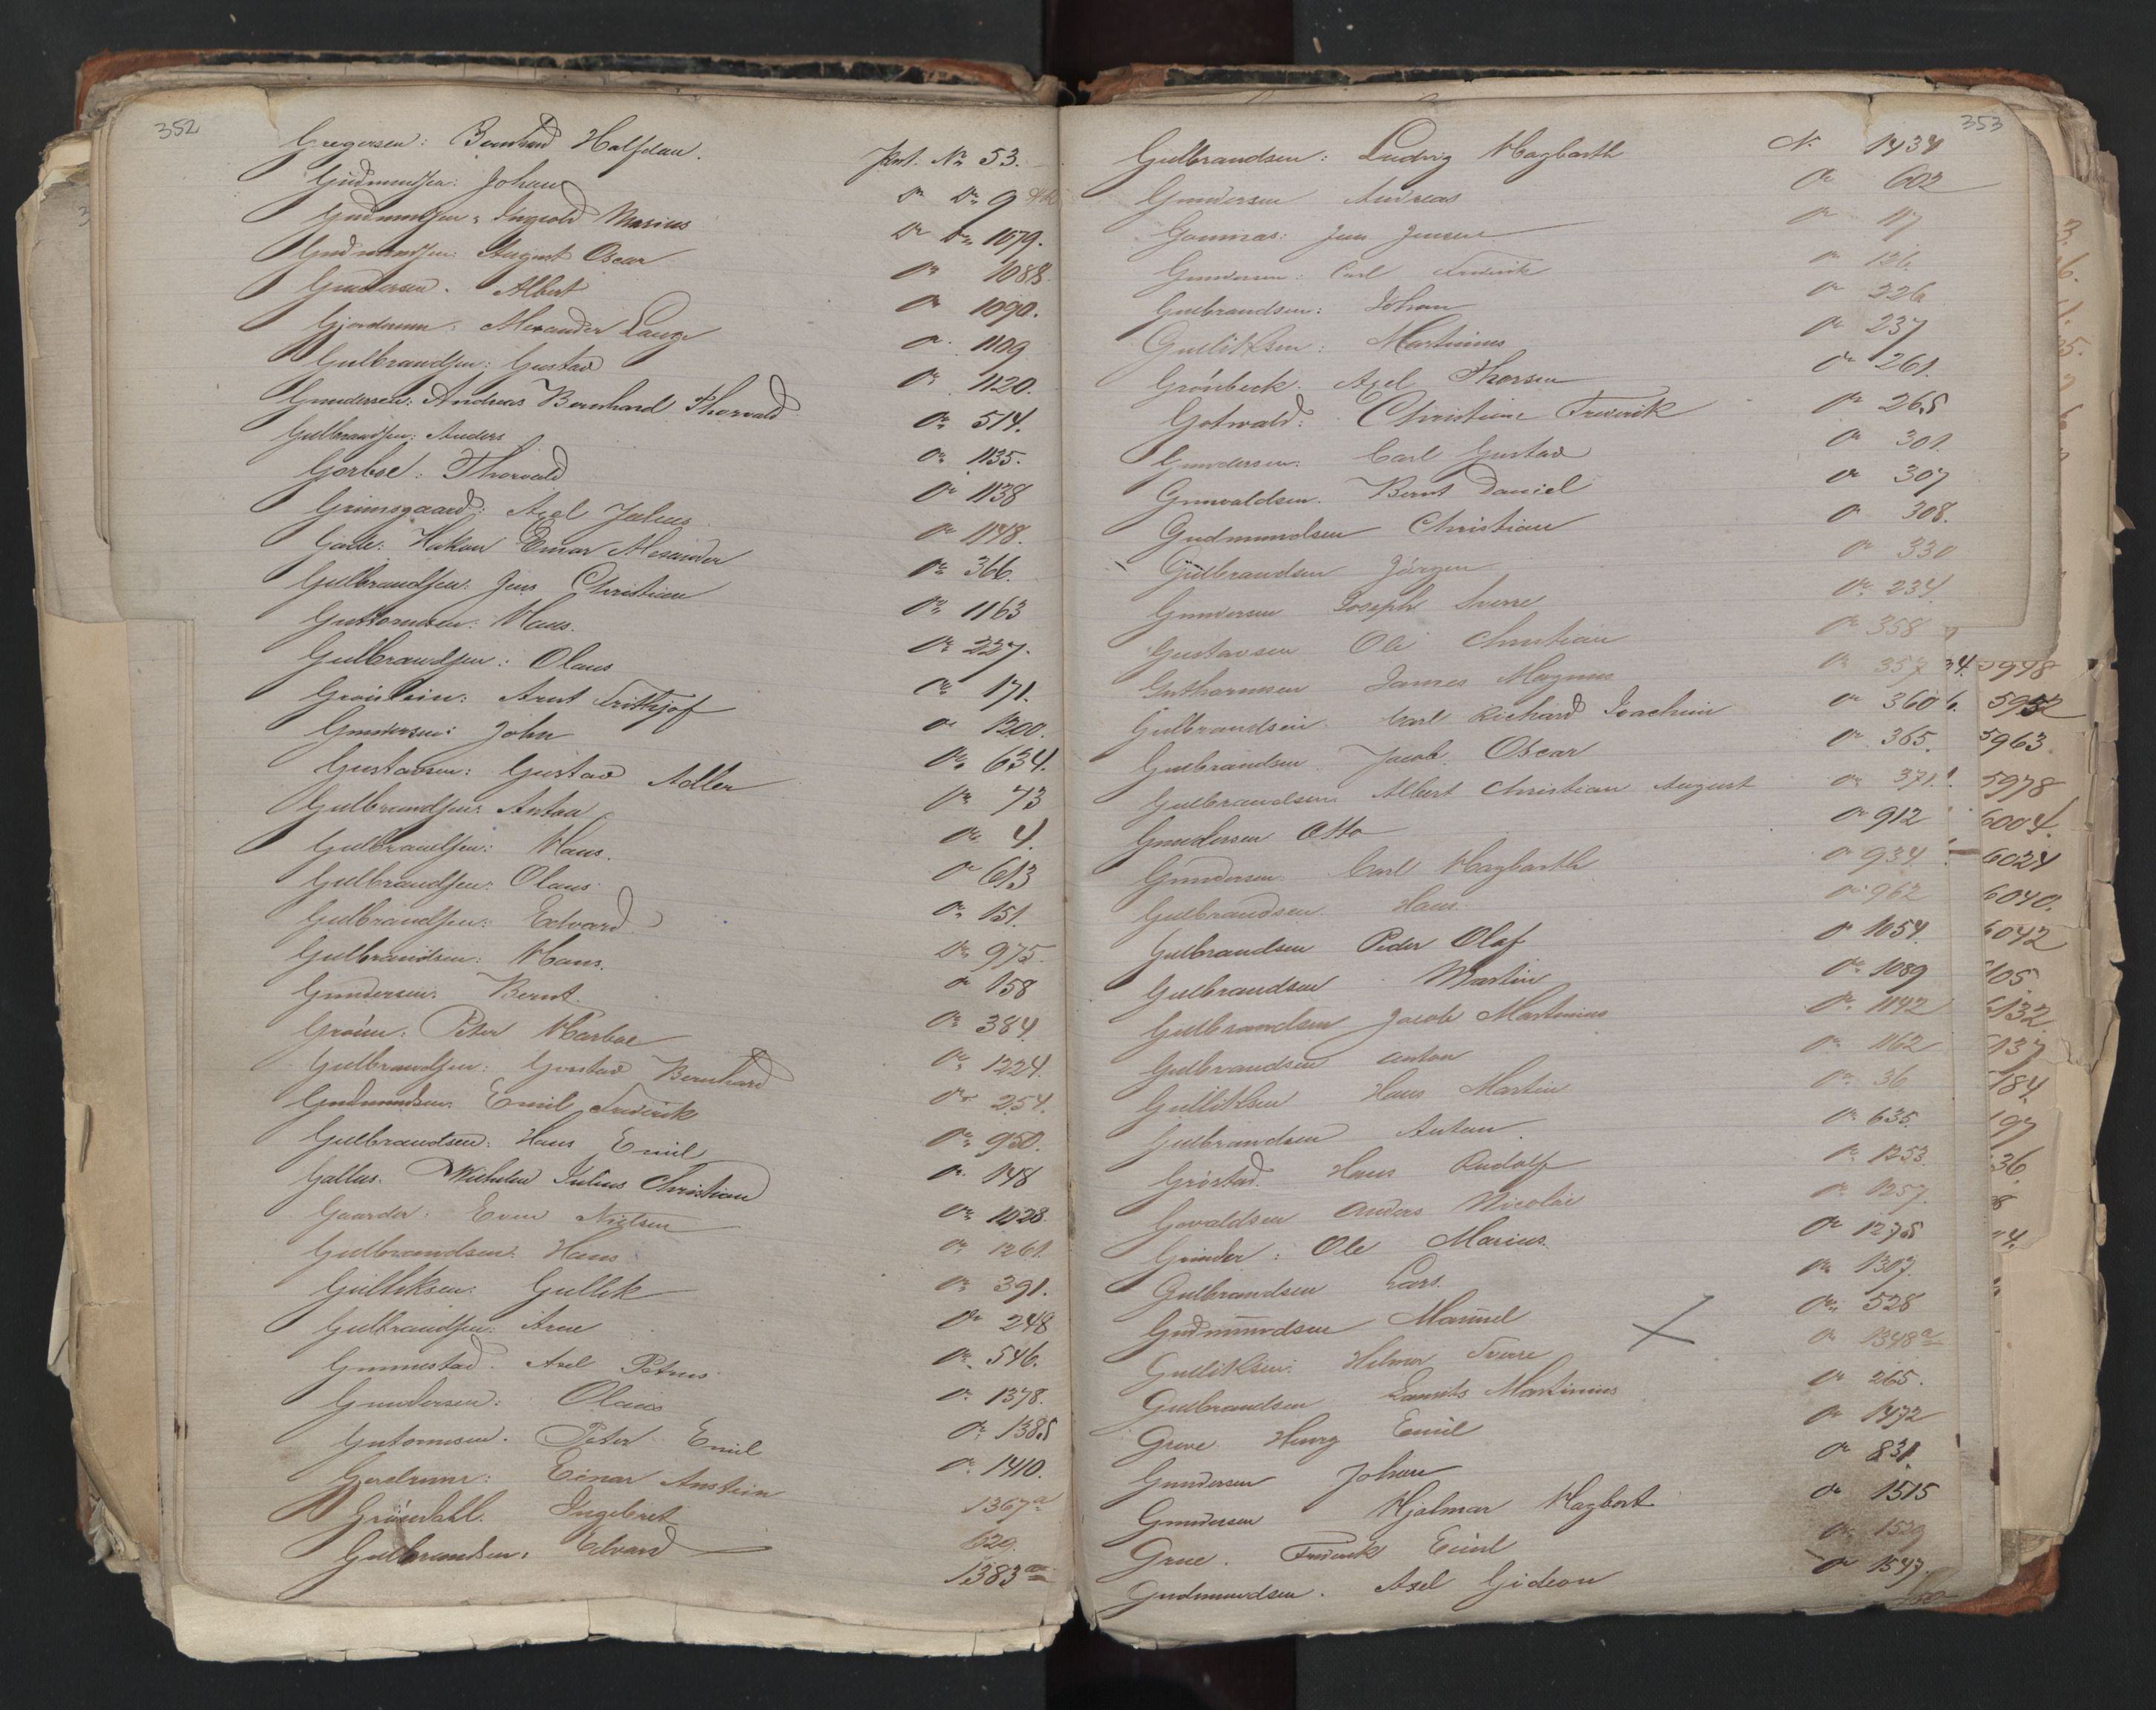 352
Gregersen: Bernhard Halfdan. Prot. No 53.
Gudmundsen: Johan Do Do 9
Gudmundsen: Ingvold Marius Do Do 1079.
Gudmundsen: August Oscar Do 1088.
Gundersen. Albert Do 1090.
Gjordrum: Alexander Lange Do 1109
Gulbrandsen: Gustav Do 1120.
Gundersen: Andreas Bernhard Thorvald Do 514.
Gulbrandsen: Anders Do 1135.
Gorboe: Thorvald Do 1138
Grimsgaard: Axel Julius Do 1148.
Gade: Hakon Einar Alexander Do 366.
Gulbrandsen: Jens Christian Do 1163
Guttormsen: Hans. Do 227.
Gulbrandsen: Olaus Do 171.
Grönstein: Arnt Frithjof Do 1200.
Gundersen: John Do 634.
Gustavsen: Gustav Adler Do 73
Gulbrandsen: Anton Do 4.
Gulbrandsen: Hans. Do 613
Gulbrandsen: Olaus Do 151.
Gulbrandsen: Edvard Do 975.
Gulbrandsen: Hans. Do 158
Gundersen: Bernt. Do 384.
Grönn: Peter Harboe Do 1224.
Gulbrandsen: Gustav Bernhard Do 254.
Gudmundsen: Emil Frederik Do 950.
Gulbrandsen: Hans Emil Do 148
Gallus. Wilhelm Julius Christian Do 1028.
Gaarder. Even Nielsen Do 1261.
Gulbrandsen: Hans Do 391.
Gulliksen: Gullik Do 248
Gulbrandsen: Arne Do 546.
Gimmestad. Axel Petrus Do 1378.
Gundersen: Olaus Do 1385
Gutormsen. Peter Emil Do 1410.
Gjerdrum: Einar Anstein 1367a
Gröndahl. Ingebret 620.
Gulbrandsen: Edvard 1383a
353
Gulbrandsen: Ludvig Hagbarth No 1434
Gundersen Andreas Do 602
Gommas: Jens Jensen Do 117
Gundersen: Carl Frederik Do 126.
Gulbrandsen: Johan Do 226
Gulliksen: Martinius Do 237
Grönbeck. Axel Thorsen Do 261.
Gotwald: Christian Frederik Do 265
Gundersen: Carl Gustav Do 301.
Grunvaldsen. Bernt Daniel Do 307
Gudmundsen Christian Do 308.
Gulbrandsen Jörgen Do 330
Gundersen Joseph Sverre Do 234.
Gustavsen Ole Christian Do 358
Guthormsen James Magnus Do 357
Gulbrandsen. Carl Richard Joachim Do 360
Gulbrandsen. Jacob Oscar Do 365.
Gulbrandsen Albert Christian August Do 371.
Gundersen Otto Do 912
Gundersen. Carl Hagbarth Do 934
Gulbrandsen. Hans. Do 962
Gulbrandsen Peder Olaf Do 1054.
Gulbrandsen Martin Do 1089
Gulbrandsen Jacob Martinius Do 1142
Gulbrandsen Anton Do 1162
Gulliksen Hans Martin Do 36
Gulbrandsen Anton. Do 635.
Gröstad. Hans Rudolf Do 1253
Govaldsen Anders Nicolai Do 1257.
Grinder: Ole Marius. Do 1275
Gulbrandsen Lars. Do 1307.
Gudmundsen Manuel Do 528
Gulliksen: Helmer Sverre Do 1348a
Gulbrandsen Laurits Martinius Do 265.
Greve Henry Emil Do 1472
Gundersen Johan Do 831
Gundersen Hjalmar Hagbart Do 1515
Grue. Frederik Emil Do 1529
Gudmundsen. Axel Gideon Do 1547.
5998
5952
5963.
5978
6004.
6024
6040.
6042
105.
6132
137
184.
197
36.
8
4.